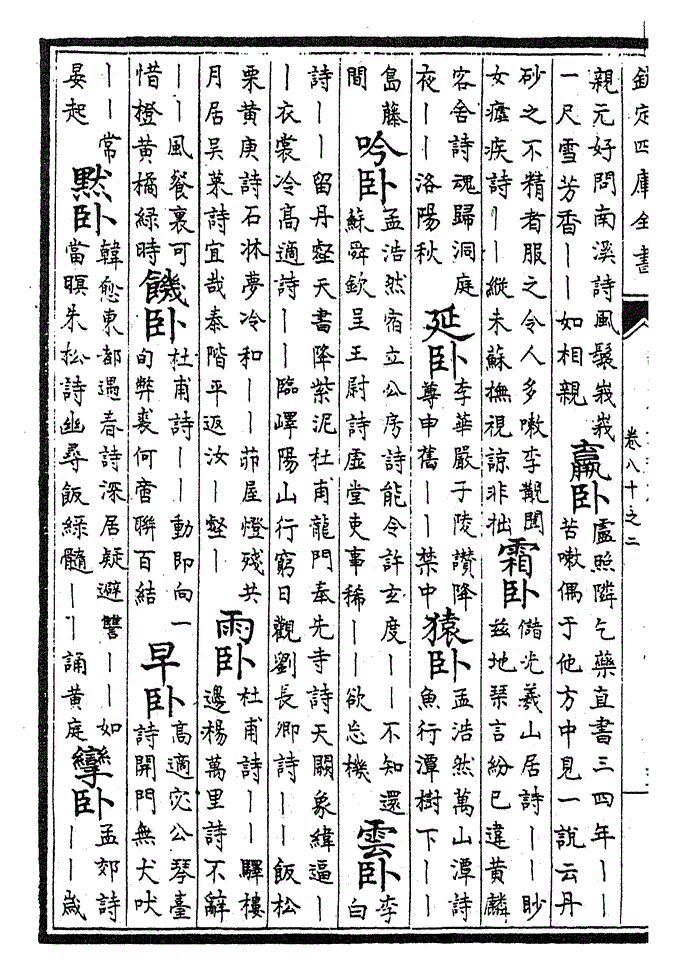 欽定四庫全書
卷八十之二
親元好問南溪詩風鬟峩峩
一尺雪芳香丨丨如相親
羸卧
盧照隣乞藥直書三四年丨丨
苦嗽偶于他方中見一說云丹
砂之不精者服之令人多嗽李覯閔
女瘧疾詩丨丨縱未蘇撫視諒非拙
霜卧
儲光羲山居詩丨丨眇
兹地琴言紛已違黃麟
客舍詩魂歸洞庭
夜丨丨洛陽秋
延卧
李華嚴子陵讃降
尊申舊丨丨禁中
猿卧
孟浩然萬山潭詩
魚行潭樹下丨丨
島藤
間
吟卧
孟浩然宿立公房詩能令許玄度丨丨不知還
蘇舜欽呈王尉詩虛堂吏事稀丨丨欲忘機
雲卧
李
白
詩丨丨留丹壑天書降紫泥杜甫龍門奉先寺詩天闕象緯逼丨
丨衣裳冷高適詩丨丨臨嶧陽山行窮日觀劉長卿詩丨丨飯松
栗黃庚詩石牀夢冷和丨丨茆屋燈殘共
月居吳萊詩宜哉泰階平返汝丨壑丨
雨卧
杜甫詩丨丨驛樓
邊楊萬里詩不辭
丨丨風餐裏可
惜橙黃橘綠時
饑卧
杜甫詩丨丨動即向一
旬弊裘何啻聯百結
早卧
高適宓公琴臺
詩開門無犬吠
丨丨常
晏起
黙卧
韓愈東都遇春詩深居疑避讐丨丨如
當暝朱松詩幽尋飯綠髓丨丨誦黃庭
孿卧
孟郊詩
丨丨歲